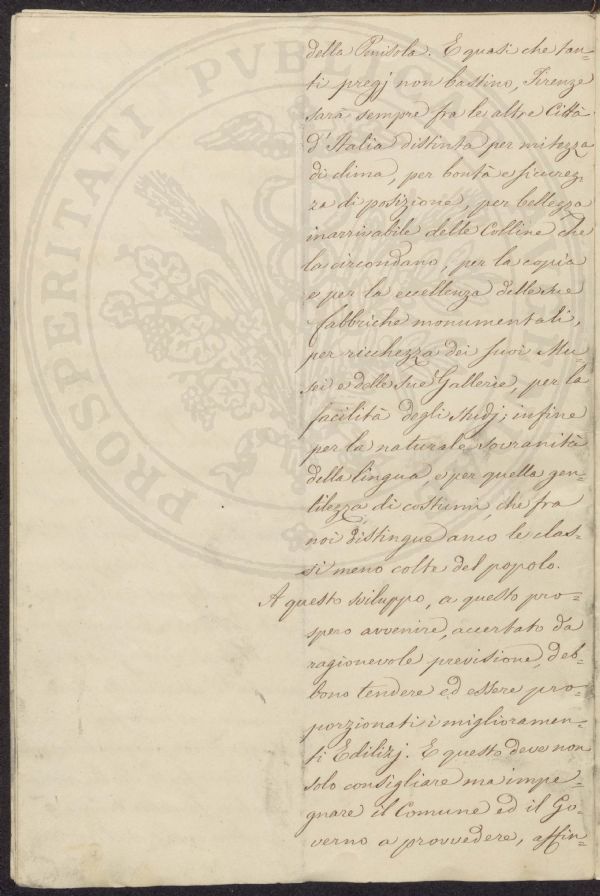 della Penisola. E quasi che tan=
ti pregj non bastino, Firenze
sarà sempre fra le altre Città
d'Italia distinta per mitezza
di clima, per bontà e sicurez=
za di posizione, per bellezza
inarrivabile delle Colline che
la circondano, per la copia
e per la eccellenza delle sue
fabbriche monumentali,
per ricchezza dei suoi Mu=
sei e delle sue Gallerie, per la
facilità degli studj; infine
per la naturale sovranità
della lingua, e per quella gen=
tilezza di costumi, che fra
noi distingue anco le clas=
si meno colte del popolo.
A questo sviluppo, a questo pro=
spero avvenire, accertato da
ragionevole previsione, deb=
bono tendere ed essere pro=
porzionati i miglioramen=
ti Edilizj. E questo deve non
solo consigliare ma impe=
gnare il Comune ed il Go=
verno a provvedere, affin=
PROSPERITATI PVB